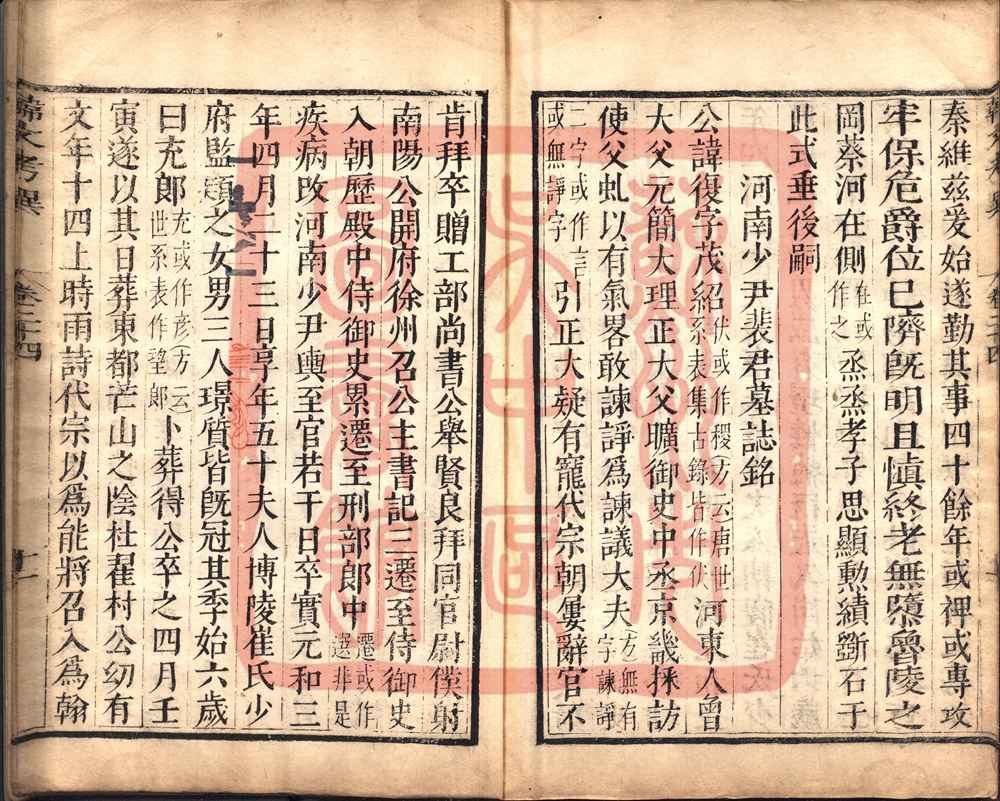 秦維茲爰始遂勤其事四十餘年或裨或專攻
牢保危爵位已隮旣明且愼終老無隳魯陵之
岡蔡河在側在或作之烝烝孝子思顯勳績斵石于
此式垂後嗣
河南少尹裴君墓誌銘
公諱復字茂紹伏或作稷方云唐世系表集古錄皆作伏河東人曾
大父元簡大理正大父曠御史中丞京畿採訪
使父虬以有氣畧敢諫諍爲諫議大夫方無有字諫諍
二字或作言或無諍字引正大疑有寵代宗朝屢辭官不
肯拜卒贈工部尚書公舉賢良拜同官尉僕射
南陽公開府徐州召公主書記三遷至侍御史
入朝歷殿中侍御史累遷至刑部郞中遷或作選非是
疾病改河南少尹輿至官若干日卒實元和三
年四月二十三日享年五十夫人博陵崔氏少
府監頲之女男三人璟質皆旣冠其季始六歲
曰充郞充或作彦方云世系表作望郞卜葬得公卒之四月壬
寅遂以其日葬東都芒山之陰杜翟村公幼有
文年十四上時雨詩代宗以爲能將召入爲翰
韓文考異
卷二十四